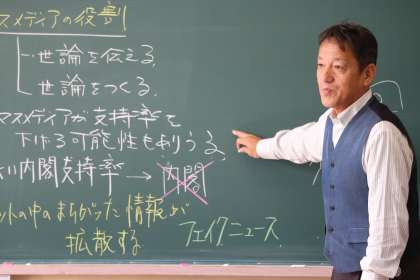 スメディアの役割
世論を伝える
世論をつくる
マスメディアが支持率を
下げる可能性もありうる
い内閣支持率 → 内閣
ットの中のまちがった情報が
拡散する
フェイクニュース